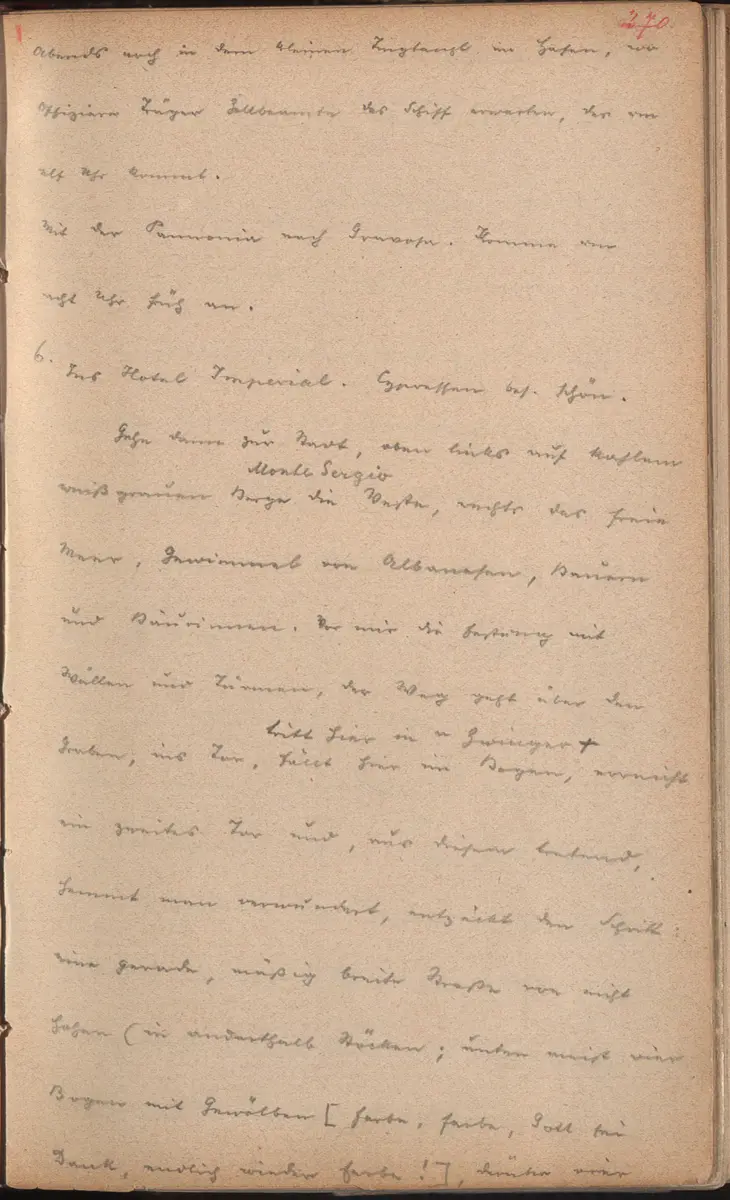 270.
Abends noch in dem kleinen Tingltangl im Hafen, wo
Offiziere Träger Zollbeamte das Schiff erwarten, das um
elf Uhr kommt.
Mit der Pannonia nach Gravosa. Komme um
acht Uhr früh an.
6. Ins Hotel Imperial. Cypressen bes. schön.
Gehe dann zur Stadt, oben links auf kahlem
Monte Sergio
weißgrauen Berge die Veste, rechts das freie
Meer, Gewimmel von Albanesen, Bauern
und Bäurinnen. Vor mir die Festung mit
Wällen und Türmen, der Weg geht über den
tritt hier in Zwinger +
Graben, ins Tor, hier im Bogen, erreicht
ein zweites Tor und, aus diesem tretend,
hemmt man verwundert, entzückt den Schritt:
eine gerade, mäßig breite Straße von nicht
hohen (in anderthalb Stöcken; unten meist vier
Bogen mit Gewölben [Farbe, Farbe, Gott sei
Dank, endlich wieder Farbe!], darüber vier